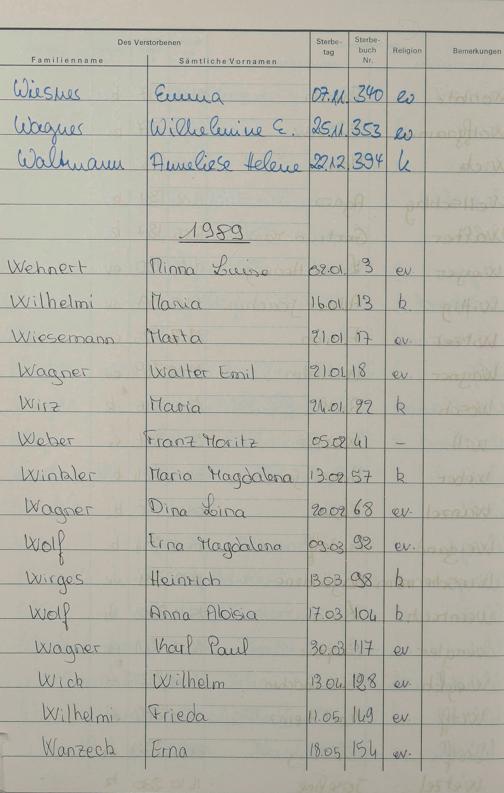 Des Verstorbenen Sterbe-tag Sterbe-buch Nr. Religion Bemerkungen
Familienname Sämtliche Vornamen
Wiesner Emma 07.11. 340 ev
Wagner Wilhelmine E. 25.11. 353 ev
Waltmann Anneliese Helene 22.12. 394 k
1989
Wehnert Minna Luise 02.01. 9 ev
Wilhelmi Maria 16.01 13 k
Wiesemann Marta 21.01 17 ev.
Wagner Walter Emil 21.01 18 ev.
Wirz Maria 24.01. 22 k
Weber Franz Moritz 05.02 41 –
Winkler Maria Magdalena 13.02 57 k
Wagner Dina Lina 20.02 68 ev.
Wolf Erna Magdalena 09.03 92 ev.
Wirges Heinrich 13.03 98 k
Wolf Anna Aloisia 17.03 104 k
Wagner Karl Paul 30.03 117 ev
Wick Wilhelm 13.04 128 ev
Wilhelmi Frieda 11.05. 149 ev
Wanzeck Erna 18.05 154 ev.